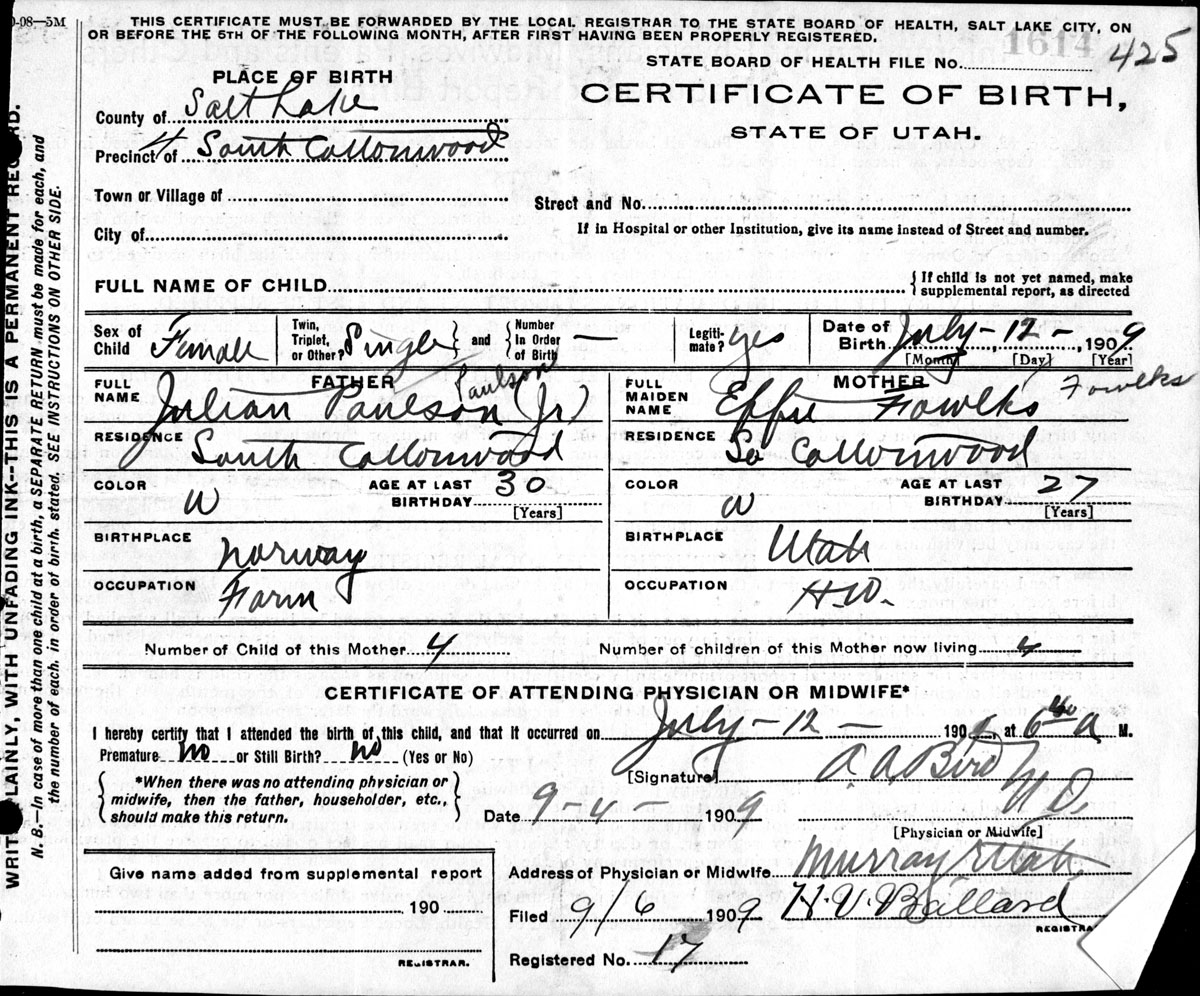 0-08—5M
THIS CERTIFICATE MUST BE FORWARDED BY THE LOCAL REGISTRAR TO THE STATE BOARD OF HEALTH, SALT LAKE CITY, ON
OR BEFORE THE 5TH OF THE FOLLOWING MONTH, AFTER FIRST HAVING BEEN PROPERLY REGISTERED.
STATE BOARD OF HEALTH FILE No. 1614 425
PLACE OF BIRTH
CERTIFICATE OF BIRTH,
STATE OF UTAH.
County of Salt Lake
Precinct of South Cottonwood
Town or Village of
Street and No.
City of
If in Hospital or other Institution, give its name instead of Street and number.
FULL NAME OF CHILD { If child is not yet named, make supplemental report, as directed
Sex of Child Female Twin, Triplet, or Other? Single } and { Number In Order of Birth — Legiti-mate? yes Date of Birth July - 12 - , 1909
[Month] [Day] [Year]
FATHER
MOTHER
FULL NAME Julian Paulson (Jr) Paulson
FULL MAIDEN NAME Effie Fowlks Fowlks
RESIDENCE South Cottonwood
RESIDENCE So Cottonwood
COLOR W AGE AT LAST BIRTHDAY 30 [Years]
COLOR W AGE AT LAST BIRTHDAY 27 [Years]
BIRTHPLACE Norway
BIRTHPLACE Utah
OCCUPATION Farm
OCCUPATION H.W.
Number of Child of this Mother 4 Number of children of this Mother now living 4
CERTIFICATE OF ATTENDING PHYSICIAN OR MIDWIFE*
I hereby certify that I attended the birth of this child, and that it occurred on July - 12 - 190 , at 6 a M.
Premature no or Still Birth? no (Yes or No)
{ *When there was no attending physician or midwife, then the father, householder, etc., should make this return. }
[Signature] A. A. Bird
M D
Date 9 - 4 - 1909
[Physician or Midwife]
Give name added from supplemental report
190
REGISTRAR.
Address of Physician or Midwife Murray Utah
Filed 9/6 1909 H. V. Ballard
REGISTRA
Registered No. 17
WRIT LAINLY, WITH UNFADING INK--THIS IS A PERMANENT RECORD.
N. B.—In case of more than one child at a birth, a SEPARATE RETURN must be made for each, and
the number of each, in order of birth, stated. SEE INSTRUCTIONS ON OTHER SIDE.